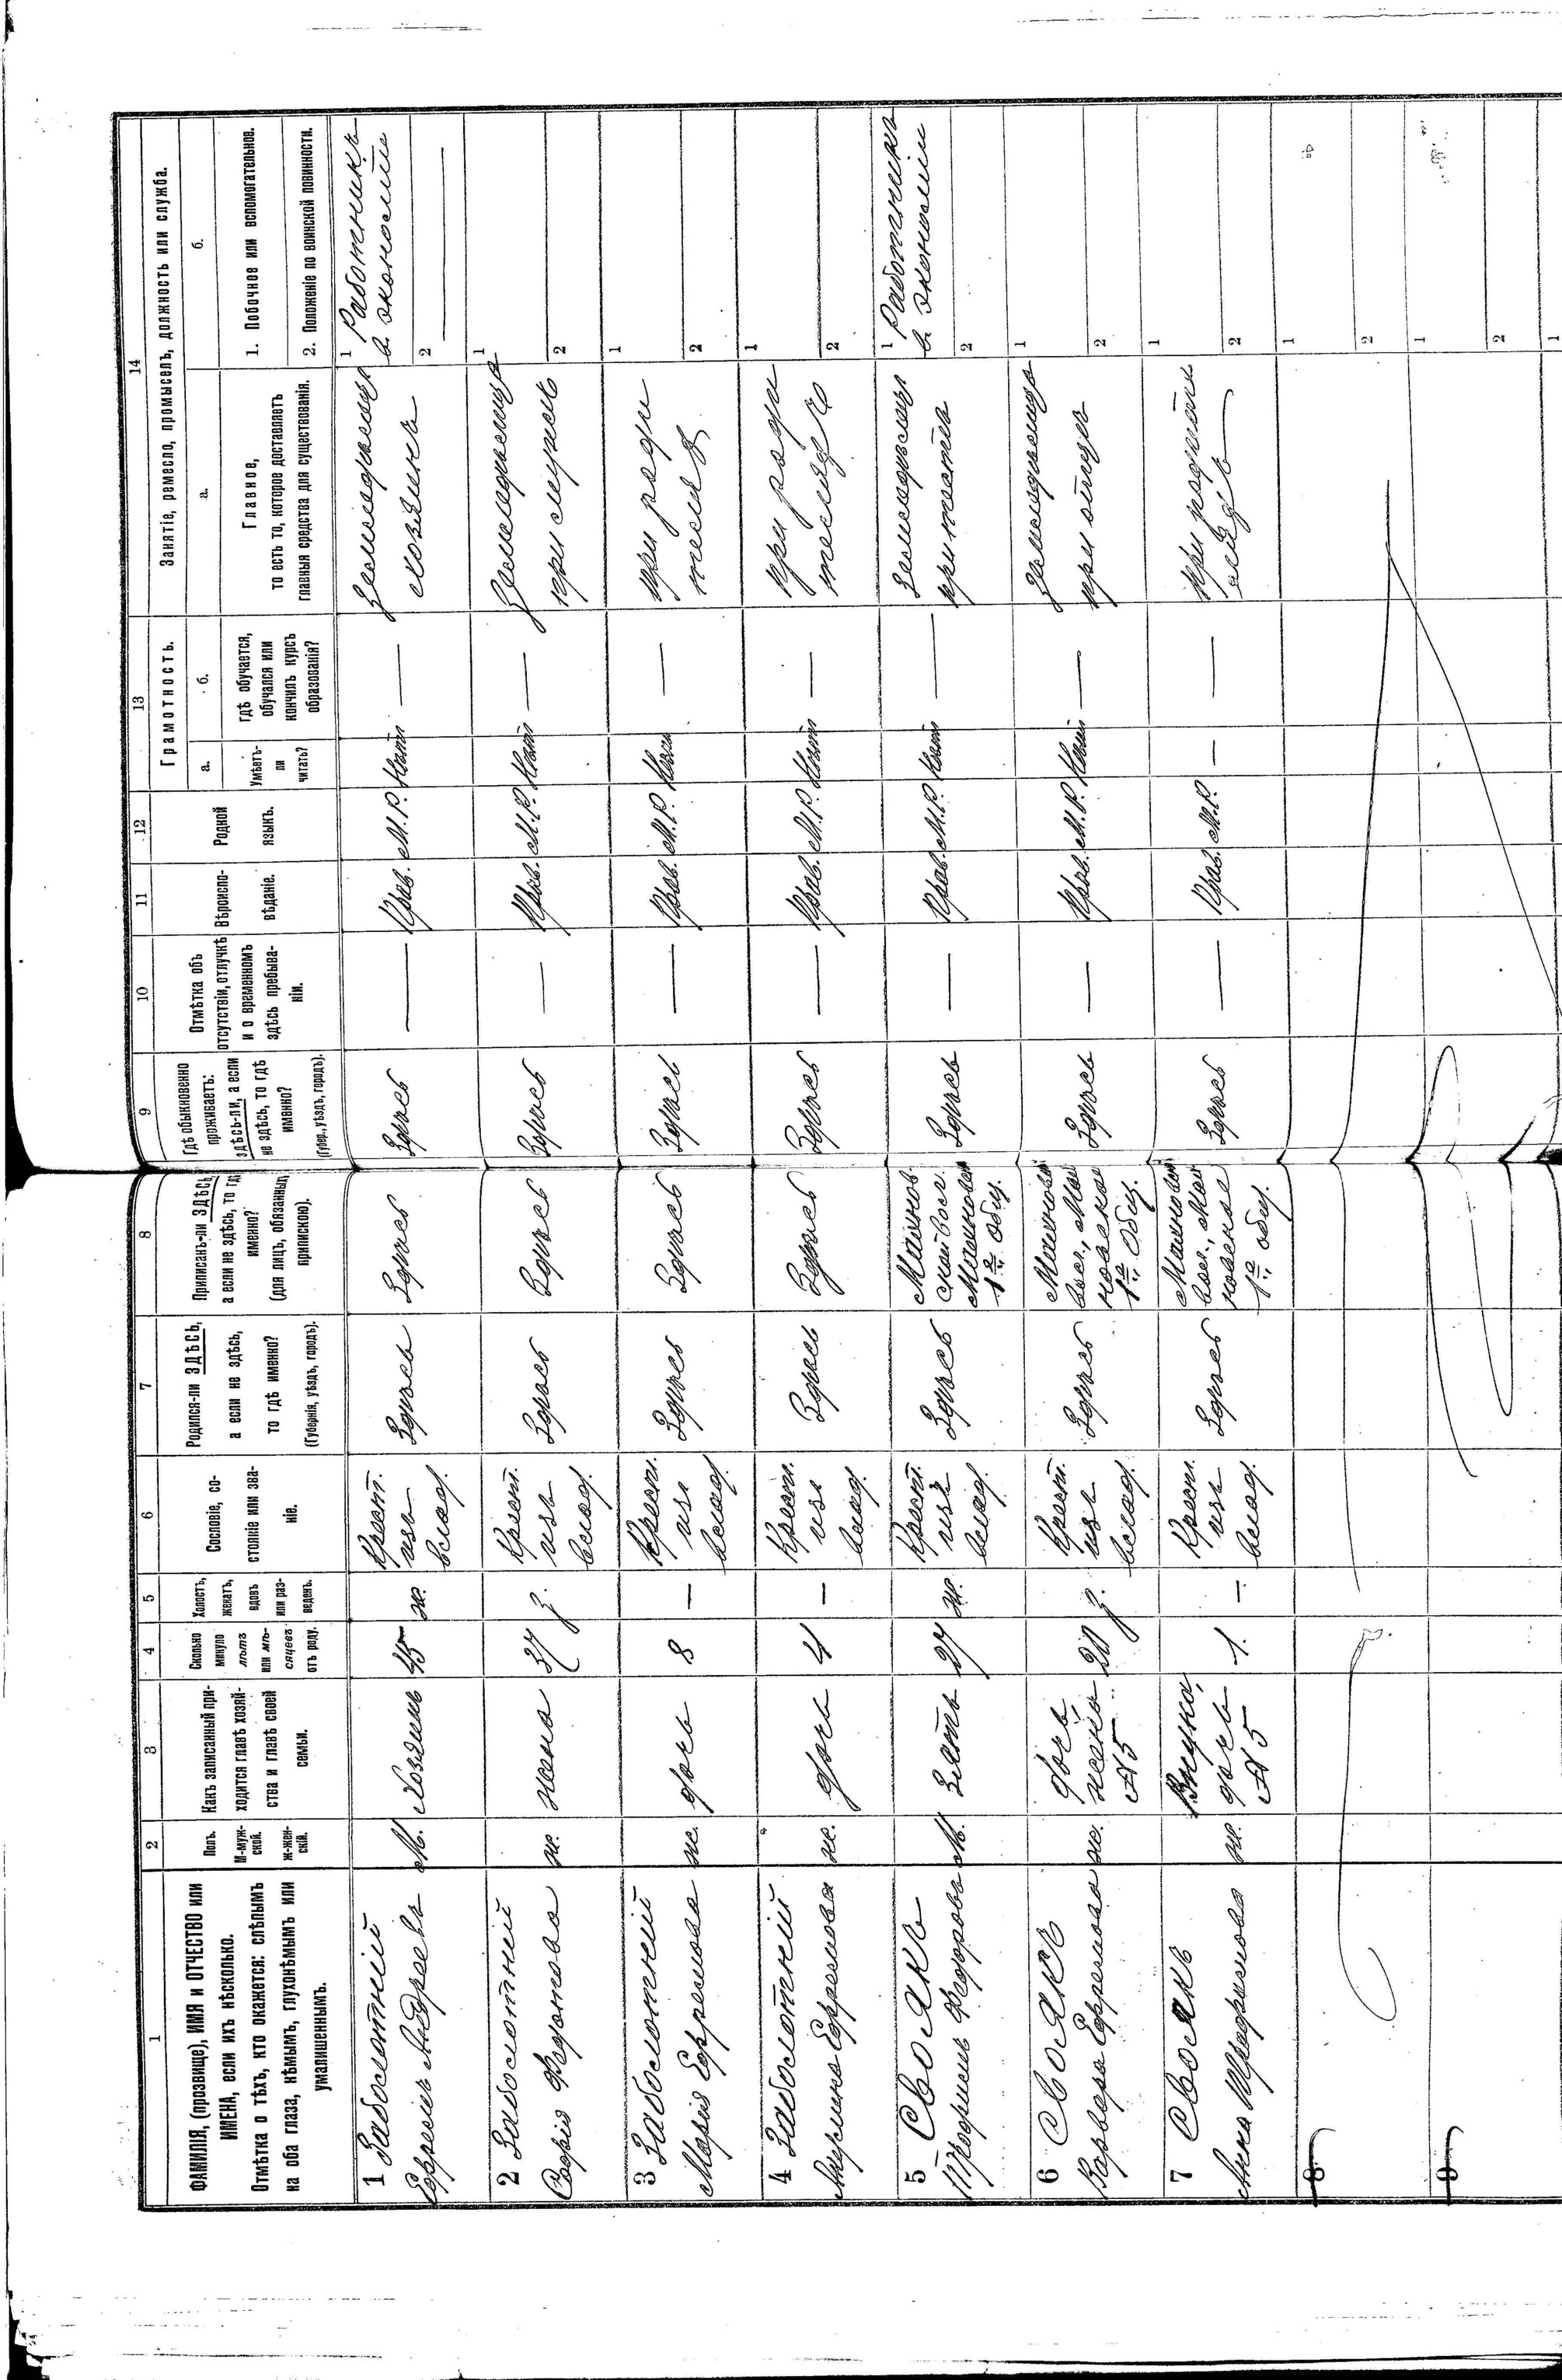 1
2
3
4
5
6
7
8
9
10
11
12
13
14
ФАМИЛІЯ, (прозвище), ИМЯ и ОТЧЕСТВО или
ИМЕНА, если ихъ нѣсколько.
Отмѣтка о тѣхъ, кто окажется: слѣпымъ
на оба глаза, нѣмымъ, глухонѣмымъ или
умалишеннымъ.
Полъ.
М-муж-
ской.
ж-жен-
скій.
Какъ записанный при-
ходится главѣ хозяй-
ства и главѣ своей
семьи.
Сколько
минуло
лѣтъ
или мѣ-
сяцевъ
отъ роду.
Холостъ,
женатъ,
вдовъ
или раз-
веденъ.
Сословіе, со-
стояніе или зва-
ніе.
Родился-ли ЗДѢСЬ,
а если не здѣсь,
то гдѣ именно?
(Губернія, уѣздъ, городъ).
Приписанъ-ли ЗДѢСЬ,
а если не здѣсь, то гдѣ
именно?
(для лицъ, обязанныхъ
припискою).
Гдѣ обыкновенно
проживаетъ:
здѣсь-ли, а если
не здѣсь, то гдѣ
именно?
(Губер., уѣздъ, городъ).
Отмѣтка объ
отсутствіи, отлучкѣ
и о временномъ
здѣсь пребыва-
ніи.
Вѣроиспо-
вѣданіе.
Родной
языкъ.
Грамотность.
а.
б.
Умѣетъ-
ли
читать?
гдѣ обучается,
обучался или
кончилъ курсъ
образованія?
Занятіе, ремесло, промыселъ, должность или служба.
а.
б.
Главное,
то есть то, которое доставляетъ
главныя средства для существованія.
1. Побочное или вспомогательное.
2. Положеніе по воинской повинности.
1 Заболотній
Ефремъ Андреевъ
М.
Хозяинъ
45
ж.
Крест.
изъ
влад.
Здѣсь
Здѣсь
Здѣсь
—
Прав.
М.Р.
Нѣтъ
—
Земледѣлецъ
хозяинъ
1 Работникъ
въ экономіи
2 —
2 Заболотній
Софія Федотова
ж.
жена
37
з.
Крест.
изъ
влад.
Здѣсь
Здѣсь
Здѣсь
—
Прав.
М.Р.
Нѣтъ
—
Земледѣлецъ
при мужѣ
1
2
3 Заболотній
Марія Ефремова
ж.
дочь
8
—
Крест.
изъ
влад.
Здѣсь
Здѣсь
Здѣсь
—
Прав.
М.Р.
Нѣтъ
—
при роди
теляхъ
1
2
4 Заболотній
Ефремова
ж.
дочь
4
—
Крест.
изъ
влад.
Здѣсь
Здѣсь
Здѣсь
—
Прав.
М.Р.
Нѣтъ
—
при роди
теляхъ
1
2
5 Своякъ
Трофимъ Федоровъ
М.
Зять
27
ж.
Крест.
изъ
влад.
Здѣсь
Махнов
ской вол.
Махновск
1го общ.
Здѣсь
—
Прав.
М.Р.
Нѣтъ
—
Земледѣлецъ
при тестѣ
1 Работникъ
въ экономіи
2
6 Своякъ
Варвара Ефремова
ж.
дочь,
жена
№5
20
з.
Крест.
изъ
влад.
Здѣсь
Махновск
вол., Мах
новское
1го Общ.
Здѣсь
—
Прав.
М.Р.
Нѣтъ
—
Земледѣлецъ
при отцѣ
1
2
7 Своякъ
Анна Трофимова
ж.
Внучка,
дочь
№5
1.
—
Крест.
изъ
влад.
Здѣсь
Махновск
вол., Мах
новское
1го общ.
Здѣсь
—
Прав.
М.Р.
—
—
при родите
ляхъ
1
2
8
1
2
9
1
2
1